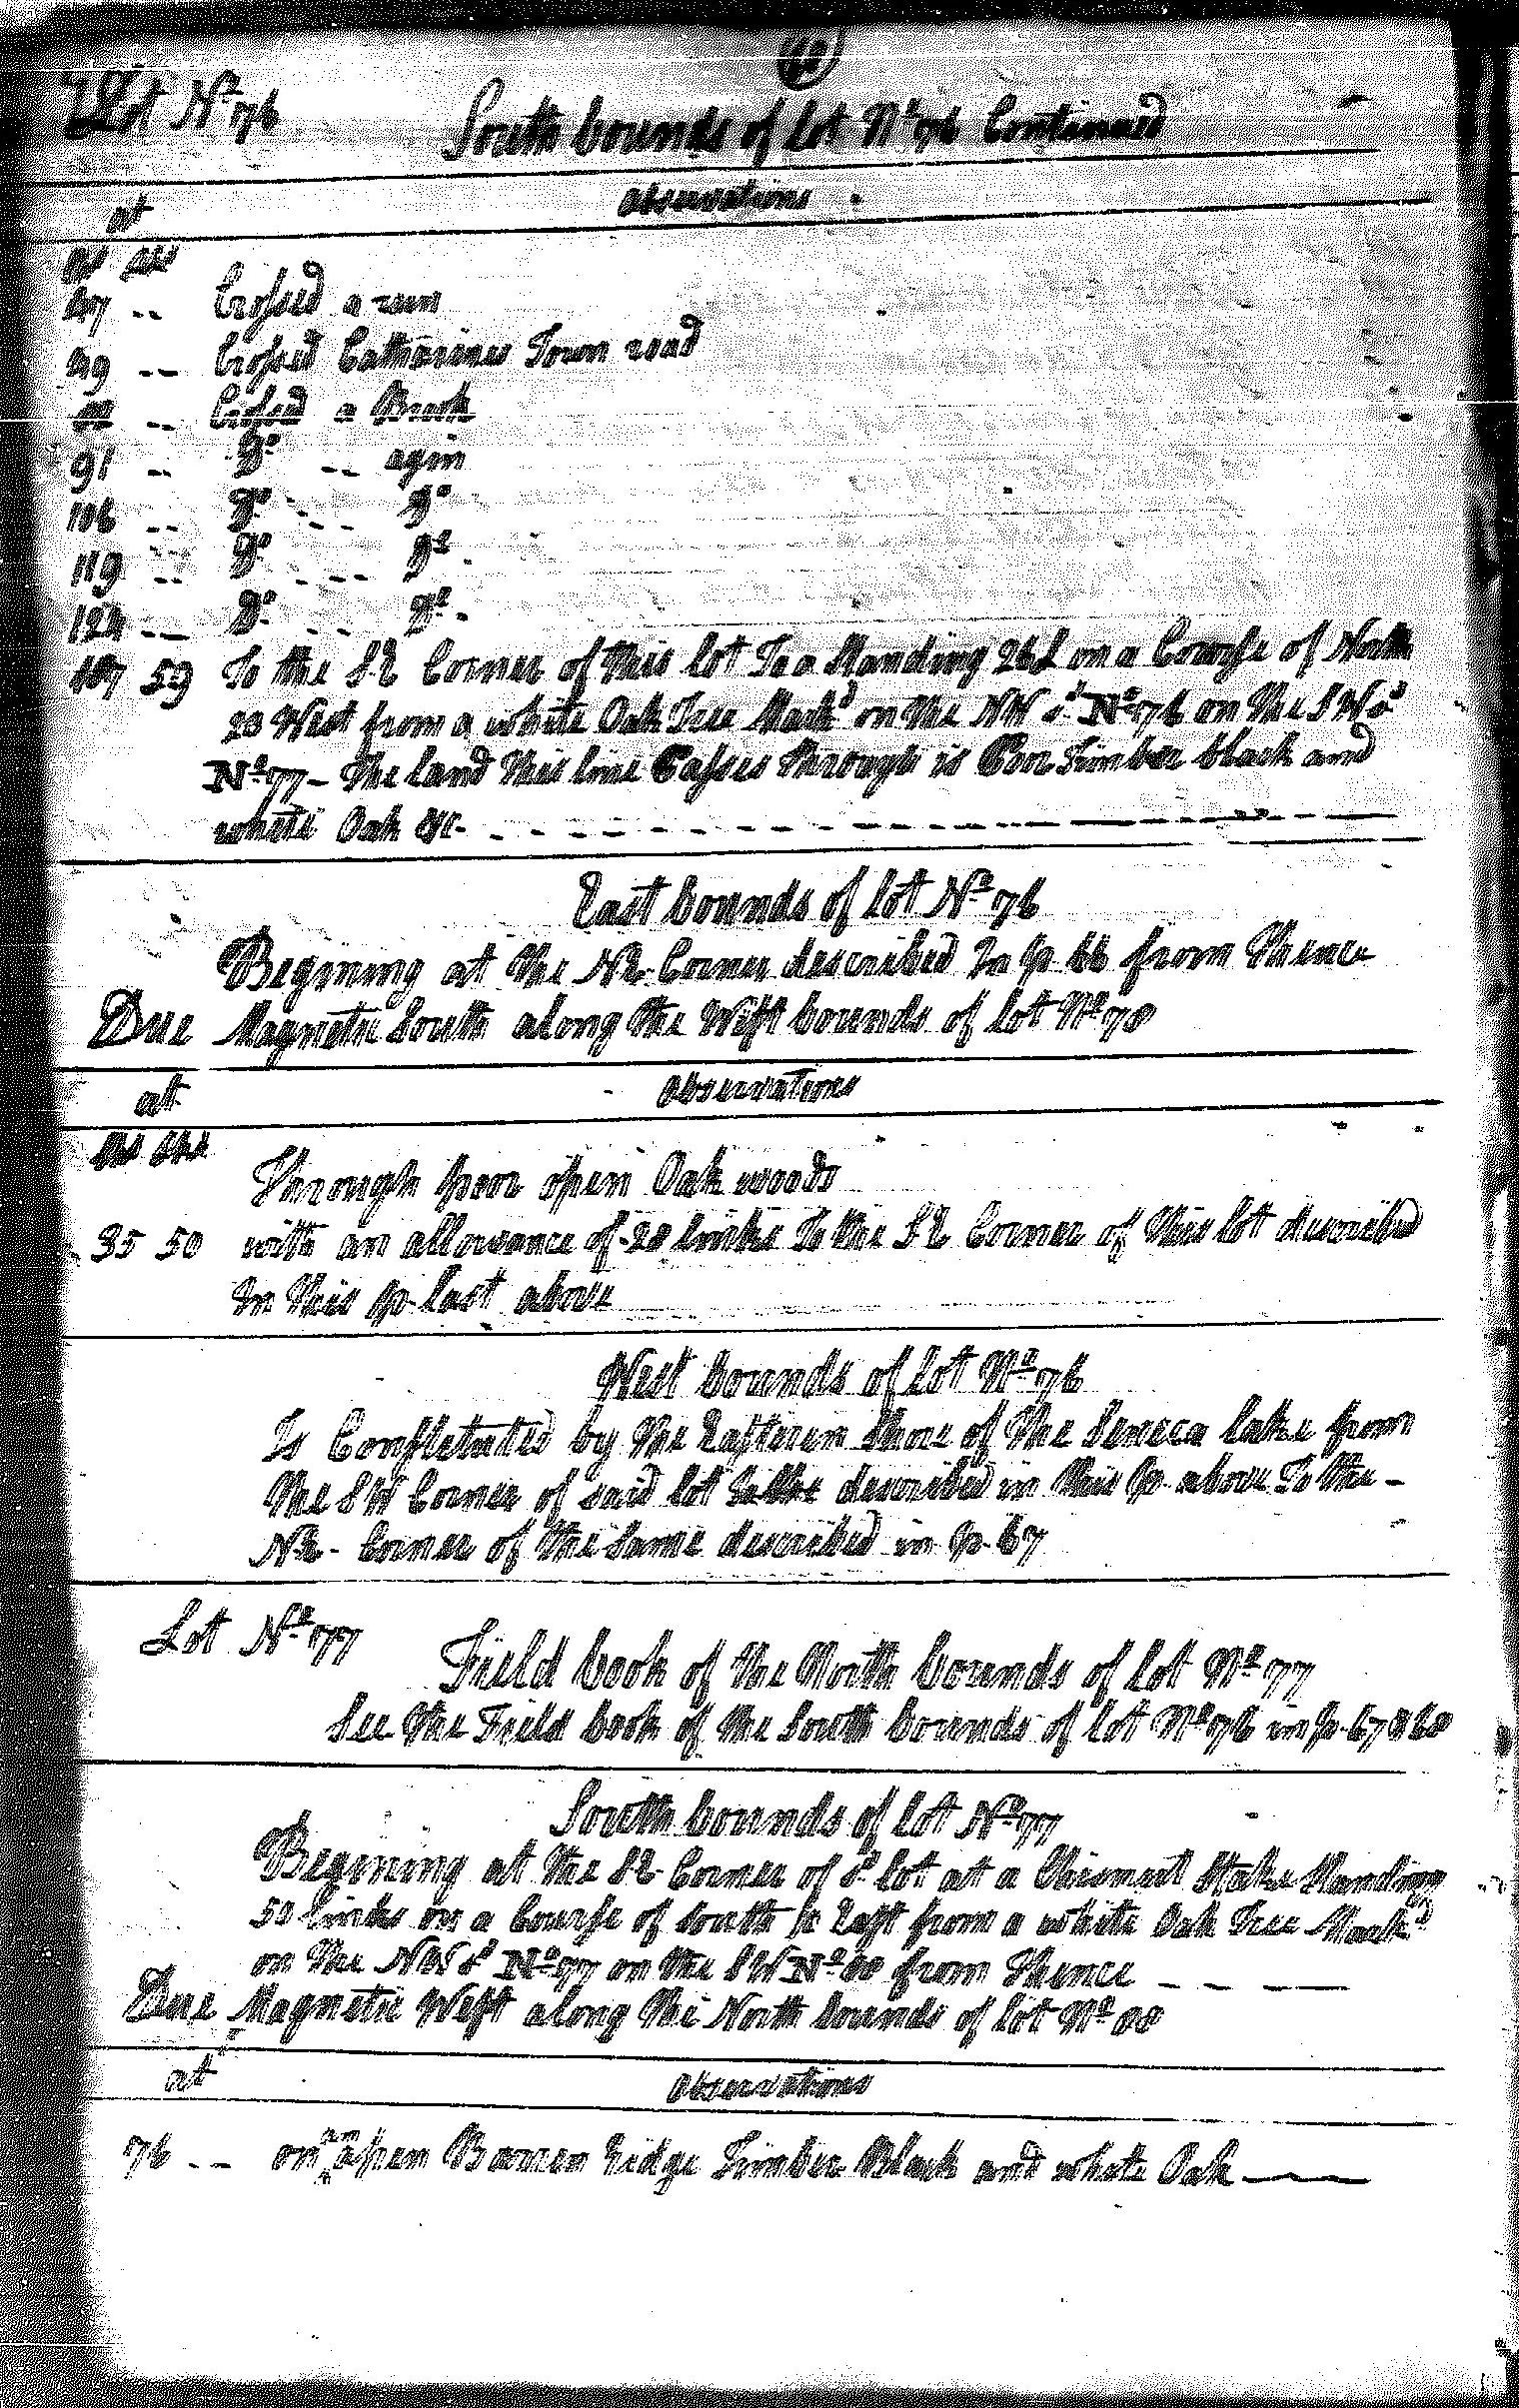 68
Lot No 76
South bounds of Lot No 76 Continued
at
Observations
Ch Lks
47 -- Crossed a run
49 -- Crossed Catharines Town road
-- Crossed a Brook
91 -- Do -- agin
106 -- Do -- Do
119 -- Do -- Do
124 -- Do -- Do -
59 To the SE Corner of this lot To a Standing 26 L on a Course of North
23 West from a white Oak Tree Markd on the NW sd No 76 on the SW sd
No 77 - The land this line Passes through is Poor Timber black and
white Oak &c -
East bounds of lot No 76
Begining at the NE Corner described In p 66 from Thence
Due Magnetic South along the West bounds of lot No 78
at Observations
Chs Lks
Through poor open Oak woods
35 50 with an allowance of 20 links To the SE Corner of this lot described
In this p last above
West bounds of Lot No 76
Is Constetuted by the Eastern Shore of the Seneca lake from
the SW Corner of said lot described in this p above To the -
NE - Corner of the Same described in p 67
Lot No 77
Field book of the North bounds of Lot No 77
See the Field book of the South bounds of lot No 76 in p 67 & 68
South bounds of Lot No 77
Begining at the SE Corner of sd lot at a Stake Standing
50 links on a Course of South East from a white Oak Tree Markd
on the NW sd No 77 on the SW No 80 from Thence -- --
Due Magnetic West along the North bounds of lot No 80
at Observations
76 -- on an open Barren ridge Timber Black and white Oak